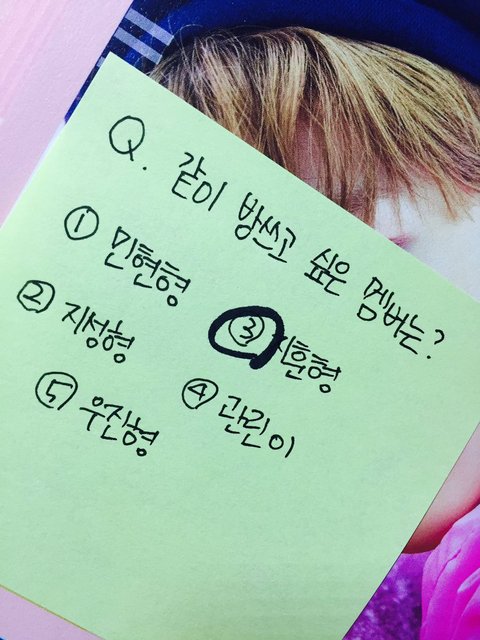 Q. 같이 방쓰고 싶은 멤버는?
① 민현형
② 지성형
③ 지훈형
④ 관린이
⑤ 우진형